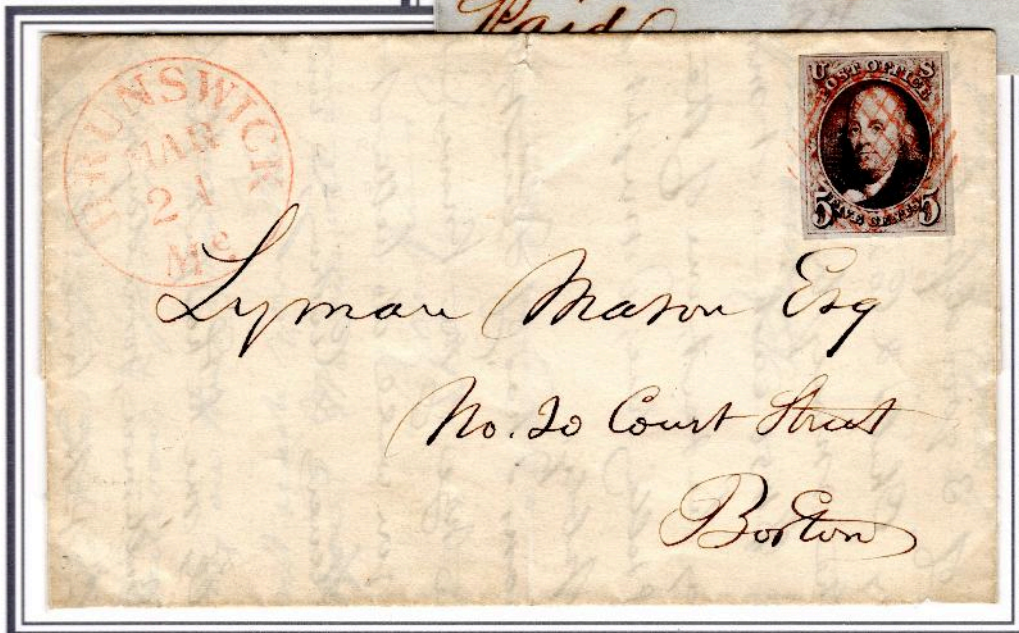 Paid
BRUNSWICK
MAR
21
Me
U S
POST OFFICE
FIVE CENTS
5 5
Lyman Mason Esq
No. 20 Court Street
Boston